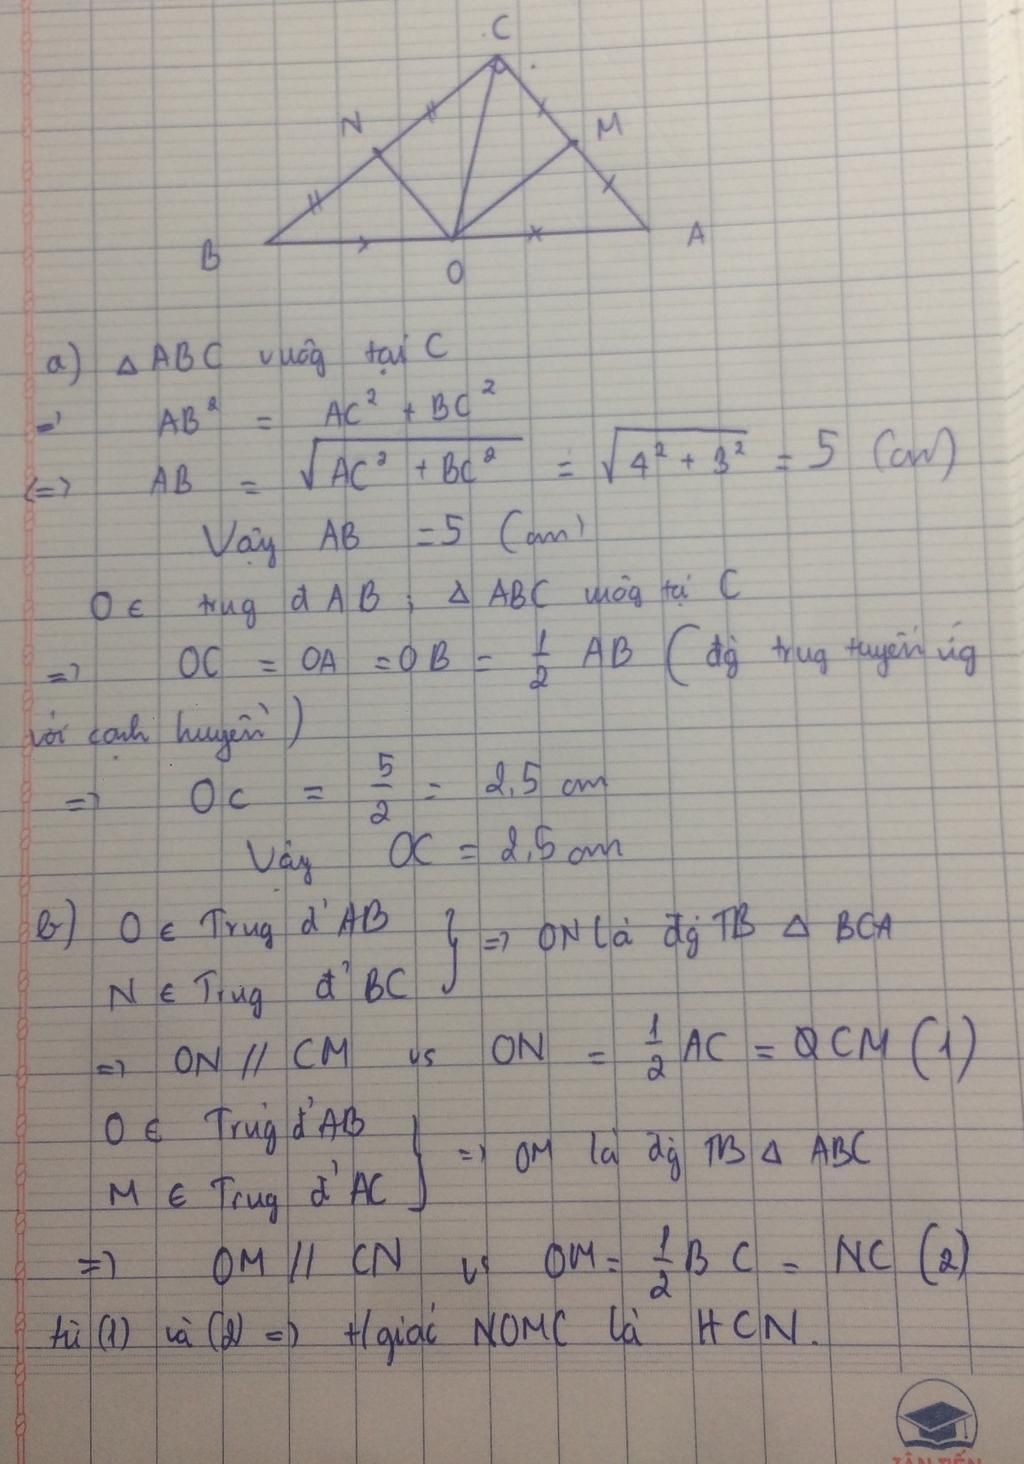 C
N
M
B
A
O
a) Δ ABC vuôg tại C
=> AB² = AC² + BC²
<=> AB = √AC² + BC² = √4² + 3² = 5 (cm)
Vậy AB = 5 (cm)
O ∈ trug đ AB ; Δ ABC vuôg tại C
=> OC = OA = OB = 1/2 AB ( đg trug tuyến ứg
với cạnh huyền )
=> OC = 5/2 = 2,5 cm
Vậy OC = 2,5 cm
b) O ∈ Trug đ' AB
N ∈ Trug đ' BC } => ON là đg TB Δ BCA
=> ON // CM vs ON = 1/2 AC = CM (1)
O ∈ Trug đ' AB
M ∈ Trug đ' AC } => OM là đg TB Δ ABC
=> OM // CN vs OM = 1/2 BC = NC (2)
từ (1) và (2) => t/giác NOMC là HCN.
TÂN TIẾN